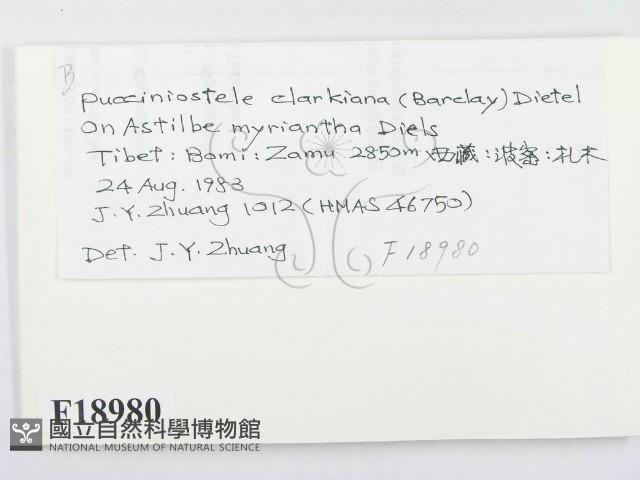 B
Pucciniostele clarkiana (Barclay) Dietel
On Astilbe myriantha Diels
Tibet: Bomi: Zamu 2850m 西藏:波密:札木
24 Aug. 1983
J.Y. Zhuang 1012 (HMAS 46750)
Det. J.Y. Zhuang
F18980
F18980
國立自然科學博物館
NATIONAL MUSEUM OF NATURAL SCIENCE